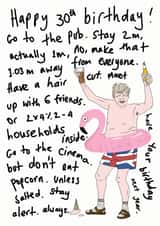 Happy 30th birthday!
Go to the pub. Stay 2m,
actually 1m, no, make that
1.03m away from everyone.
Have a hair cut. Meet
up with 6 friends.
Or 2x9%2-4
households inside.
Go to the cinema.
but don't eat
popcorn. Unless
salted. Stay
alert. always.
Your birthday
next year.